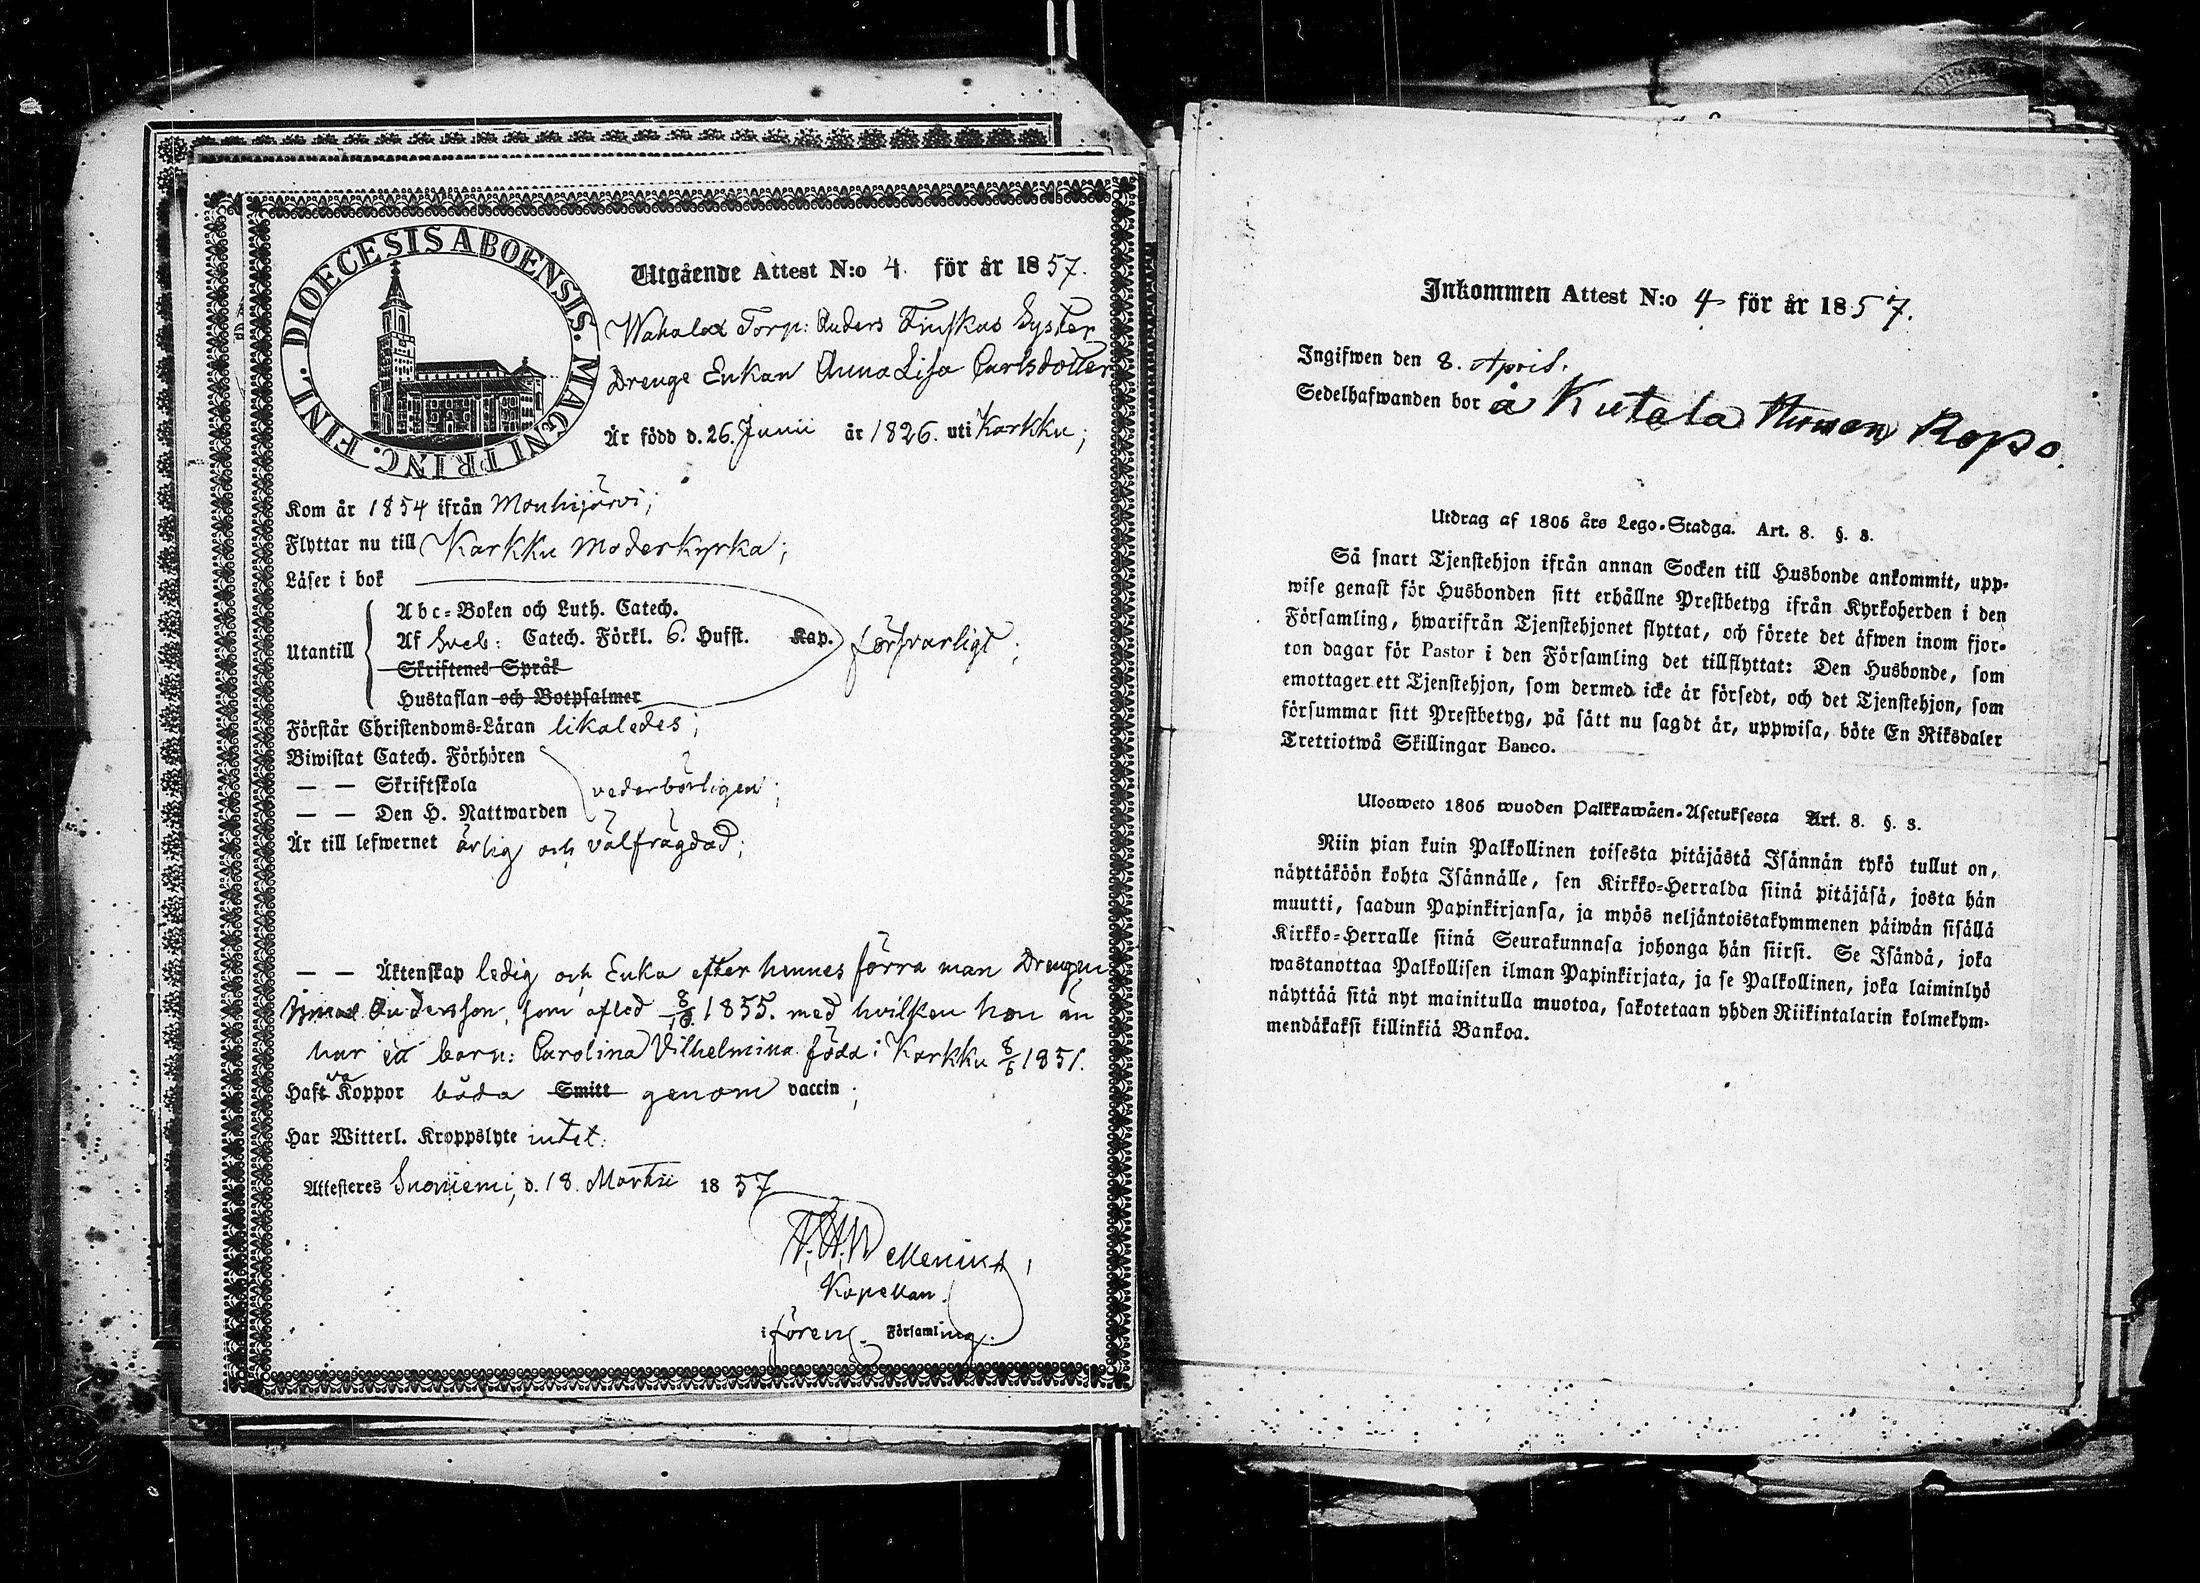 DIOECESIS ABOENSIS. MAGNI PRINC. FINL.
Utgående Attest N:o 4. för år 1857.
Torp: Anders Syster,
Drenge Enkan Anna Lisa Carlsdotter
Är född d. 26. Junii år 1826. uti Karkku;
Kom år 1854 ifrån Mouhijärvi;
Flyttar nu till Karkku Moderkyrka;
Läser i bok
Utantill
Abc-Boken och Luth. Catech.
Af Sveb: Catech. Förkl. 6. Hufst. Kap.
försvarligt;
Skriftenes Språk
Hustaflan och Botpsalmer
Förstår Christendoms-Läran likaledes;
Biwistat Catech. Förhören
— — Skriftskola
vederbörligen;
— — Den H. Nattwarden
Är till lefwernet ärlig och välfrägdad;
— — Äktenskap ledig och Enka efter hennes förra man Drengen
Andersson, som afled 8/10 1855. med hvilken hon än
har ett barn: Carolina Vilhelmina född i Karkku 8/6 1851.
Haft Koppor båda Smitt genom vaccin;
Har Witterl. Kroppslyte intet.
Attesteres Suoniemi, d. 18. Martii 1857
Kapellan.
i förend. Församling.
Inkommen Attest N:o 4 för år 1857.
Ingifwen den 8. April.
Sedelhafwanden bor å Kutala Ropo.
Utdrag af 1805 års Lego-Stadga. Art. 8. §. 3.
Så snart Tjenstehjon ifrån annan Socken till Husbonde ankommit, upp-
wise genast för Husbonden sitt erhållne Prestbetyg ifrån Kyrkoherden i den
Församling, hwarifrån Tjenstehjonet flyttat, och förete det äfwen inom fjor-
ton dagar för Pastor i den Församling det tillflyttat: Den Husbonde, som
emottager ett Tjenstehjon, som dermed icke är försedt, och det Tjenstehjon, som
försummar sitt Prestbetyg, på sätt nu sagdt är, uppwisa, böte En Riksdaler
Trettiotwå Skillingar Banco.
Ulosweto 1805 wuoden Palkkawäen-Asetuksesta Art. 8. §. 3.
Niin pian kuin Palkollinen toisesta pitäjästä Isännän tykö tullut on,
näyttäköön kohta Isännälle, sen Kirkko-Herralda siinä pitäjäsä, josta hän
muutti, saadun Papinkirjansa, ja myös neljäntoistakymmenen päiwän sisällä
Kirkko-Herralle siinä Seurakunnasa johonga hän siirsi. Se Isändä, joka
wastanottaa Palkollisen ilman Papinkirjata, ja se Palkollinen, joka laiminlyö
näyttää sitä nyt mainitulla muotoa, sakotetaan yhden Riikintalarin kolmekym-
mendäkaksi killinkiä Bankoa.